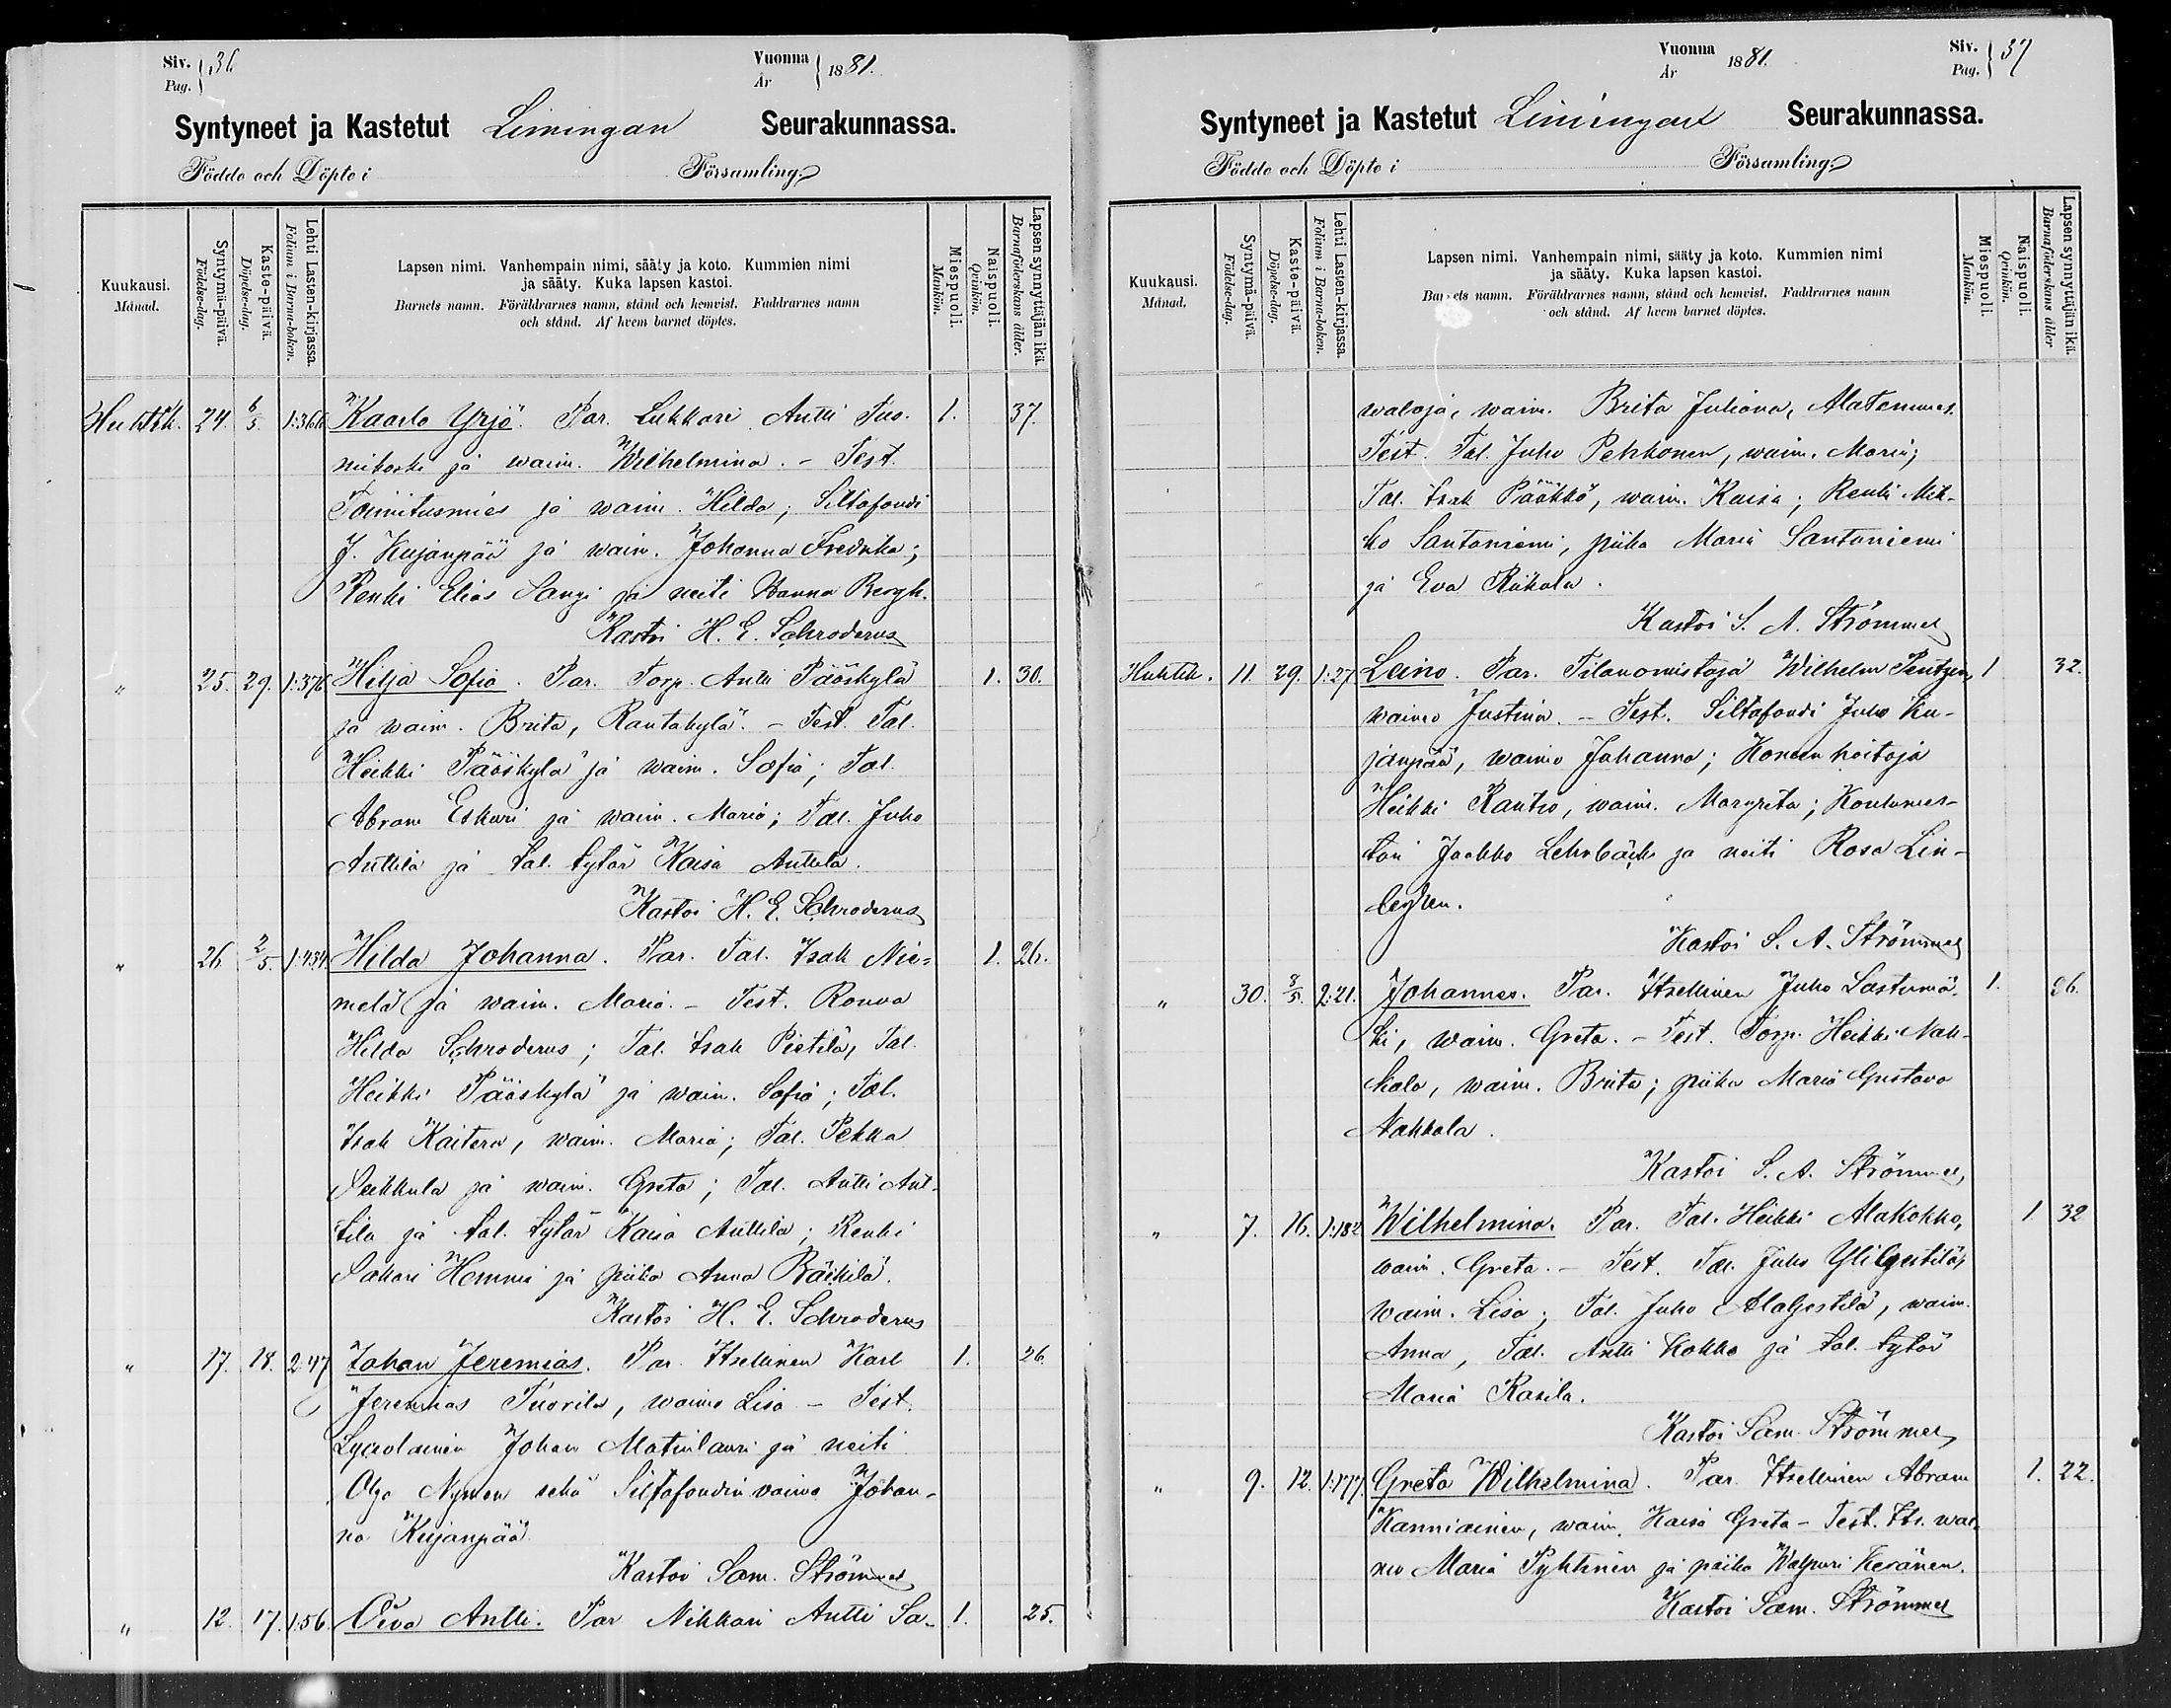 Siv. Pag. 36.
Vuonna År 1881.
Syntyneet ja Kastetut Limingan Seurakunnassa.
Födde och Döpte i Församling.
Kuukausi. Månad.
Syntymä-päivä. Födelse-dag.
Kaste-päivä. Döpelse-dag.
Lehti Lasten-kirjassa. Folium i Barna-boken.
Lapsen nimi. Vanhempain nimi, sääty ja koto. Kummien nimi
ja sääty. Kuka lapsen kastoi.
Barnets namn. Föräldrarnes namn, stånd och hemvist. Faddrarnes namn
och stånd. Af hvem barnet döptes.
Miespuoli. Mankön.
Naispuoli. Qvinkön.
Lapsen synnyttäjän ikä. Barnaföderskans ålder.
Huhtik. 24. 6/5. 1:366 Kaarlo Yrjö. Par. Lukkari Antti Tuo- 1. 37.
mikoski ja waim. Wilhelmina. - Test.
Toimitusmies ja waim. Hilda; Siltafoudi
J. Kujanpää ja waim. Johanna Fredrika;
Renki Elias Sangi ja neiti Hanna Bergh.
Kastoi H. E. Schroderus
" 25. 29. 1:376 Hilja Sofia. Par. Torp. Antti Pääskylä 1. 30.
ja waim. Brita, Rantakylä. - Test. Tal.
Heikki Pääskylä ja waim. Sofia; Tal.
Abram Eskuri ja waim. Maria; Tal. Juho
Anttila ja tal. tytär Kaisa Anttila.
Kastoi H. E. Schroderus
" 26. 2/5. 1:434. Hilda Johanna. Par. Tal. Isak Nie- 1. 26.
melä ja waim. Maria. - Test. Rouva
Hilda Schroderus; Tal. Isak Pietilä, Tal.
Heikki Pääskylä ja waim. Sofia; Tal.
Isak Kaitera, waim. Maria; Tal. Pekka
Heikkula ja waim. Greta; Tal. Antti Ant-
tila ja tal. tytär Kaisa Anttila; Renki
Sakari Hemmi ja piika Anna Räihilä.
Kastoi H. E. Schroderus
" 17. 18. 2:47 Johan Jeremias. Par. Itsellinen Karl 1. 26.
Jeremias Tuorila, waimo Lisa - Test.
Lyseolainen Johan Matinlauri ja neiti
Olga Nyman sekä Siltafoudin vaimo Johan-
na Kujanpää.
Kastoi Sam. Strömmer
" 12. 17. 1:56. Oiva Antti. Par Nikkari Antti Sa- 1. 25.
Vuonna År 1881.
Siv. Pag. 37
Syntyneet ja Kastetut Limingan Seurakunnassa.
Födde och Döpte i Församling.
Kuukausi. Månad.
Syntymä-päivä. Födelse-dag.
Kaste-päivä. Döpelse-dag.
Lehti Lasten-kirjassa. Folium i Barna-boken.
Lapsen nimi. Vanhempain nimi, sääty ja koto. Kummien nimi
ja sääty. Kuka lapsen kastoi.
Barnets namn. Föräldrarnes namn, stånd och hemvist. Faddrarnes namn
och stånd. Af hvem barnet döptes.
Miespuoli. Mankön.
Naispuoli. Qvinkön.
Lapsen synnyttäjän ikä. Barnaföderskans ålder
waloja, waim. Brita Juliana, Alatemmes.
Test. Tal. Juho Pehkonen, waim. Maria;
Tal. Isak Pääkkö, waim. Kaisa; Renki Mik-
ko Santaniemi, piika Maria Santaniemi
ja Eva Riikola.
Kastoi S. A. Strömmer
Huhtik. 11. 29. 1:27 Leino. Par. Tilanomistaja Wilhelm Pentzin, 1 32.
waimo Justina. - Test. Siltafoudi Juho Ku-
janpää, waimo Johanna; Koneenhoitaja
Heikki Rautio, waim. Margreta; Koulumes-
tari Jaakko Lehrbäck ja neiti Rosa Lin-
Kastoi S. A. Strömmer
" 30. 8/5. 2:21. Johannes. Par. Itsellinen Juho Lastumä- 1. 26.
ki, waim. Greta. - Test. Torp. Heikki Nah-
kala, waim. Brita; piika Maria Gustava
Nahkala.
Kastoi S. A. Strömmer
" 7. 16. 1:182 Wilhelmina. Par. Tal. Heikki Alakokko, 1. 32
waim. Greta. - Test. Tal. Juho Yligestilä,
waim. Lisa; Tal. Juho Alagestilä, waim.
Anna, Tal. Antti Kokko ja tal. tytär
Maria Rasila.
Kastoi Sam. Strömmer
" 9. 12. 1:177. Greta Wilhelmina. Par. Itsellinen Abram 1. 22.
Kanniainen, waim. Kaisa Greta - Test. Its. wai-
mo Maria Pyhtinen ja piika Walpuri Keränen.
Kastoi Sam. Strömmer